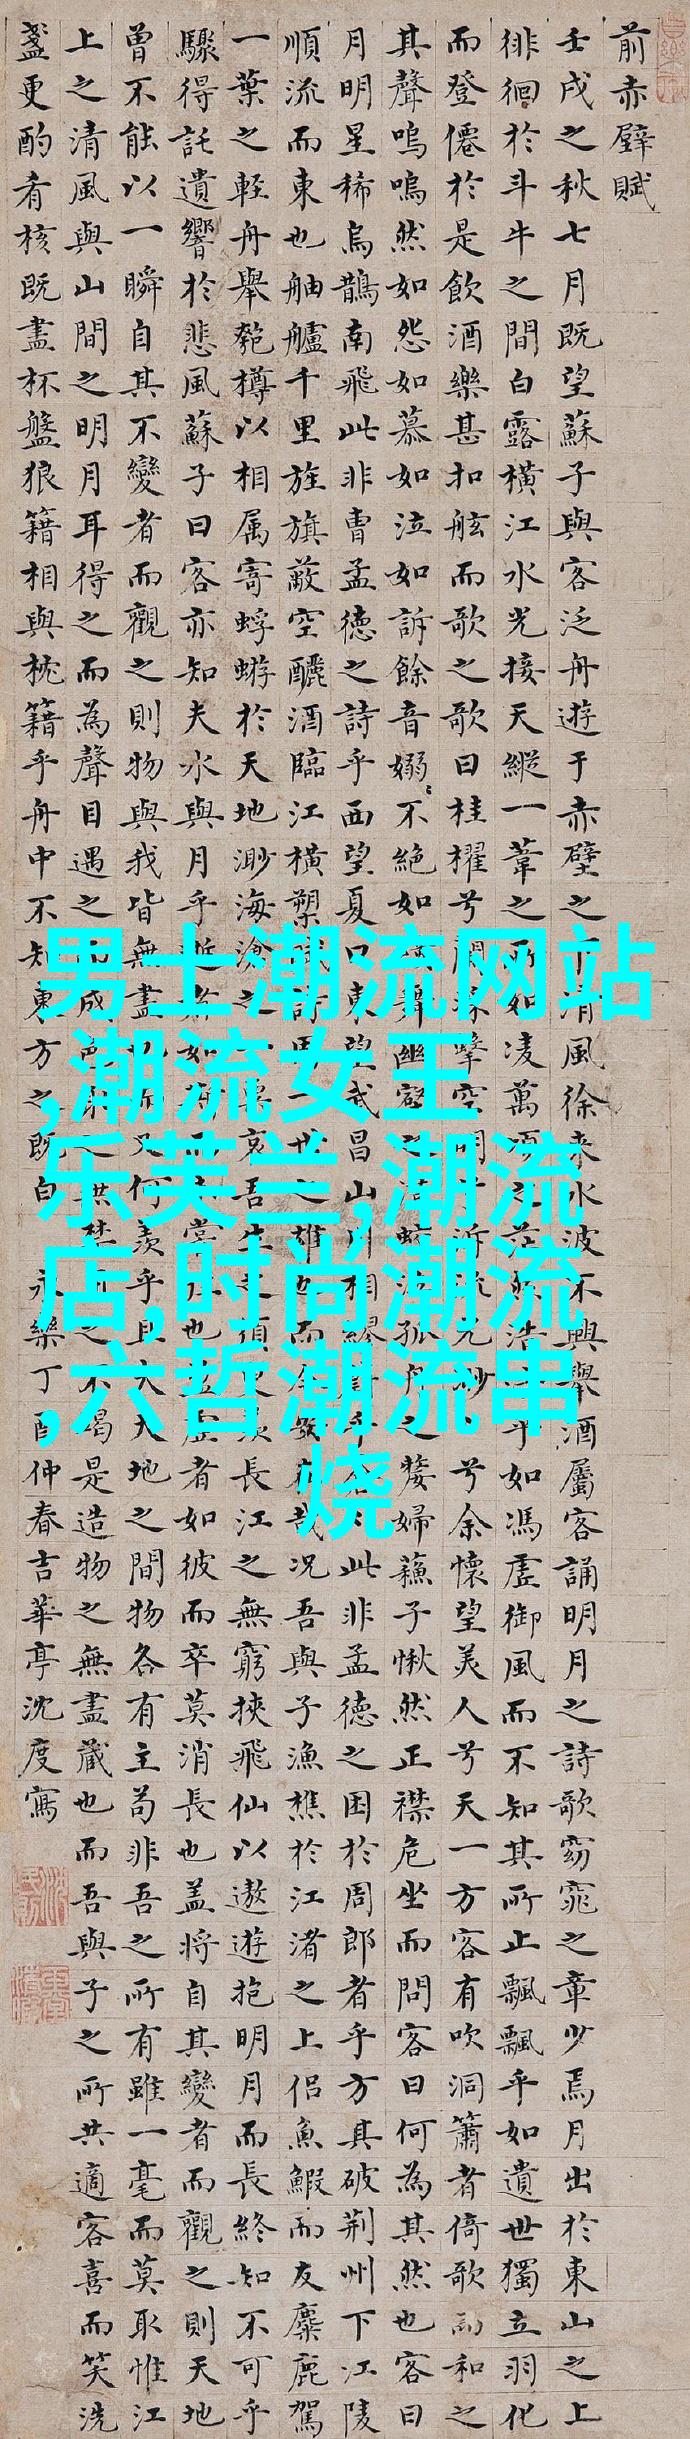 前赤壁賦
壬戌之秋七月既望蘇子與客泛舟遊于赤壁之下清風徐来水波不興舉酒屬客誦明月之詩歌窈窕之章少焉月出於東山之上
徘徊於斗牛之間白露橫江水光接天縱一葦之所如凌萬頃之茫然浩乎如馮虛御風而不知其所止飄飄乎如遺世獨立羽化
而登僊於是飲酒樂甚扣舷而歌之歌曰桂櫂兮蘭擊空明兮泝流光兮余懷望美人兮天一方客有吹洞簫者倚歌而和之
其聲嗚嗚然如怨如慕如泣如訴餘音嫋〻不絕如舞幽壑之蛟泣孤舟之嫠婦蘇子愀然正襟危坐而問客曰何為其然也客曰
月明星稀烏鵲南飛此非曹孟德之詩乎西望夏口東望武昌山川相繆乎此非孟德之困於周郎者乎方其破荆州下江陵
順流而東也舳艫千里旌旗蔽空釃酒臨江橫槊賦詩一世之雄也而今在哉況吾與子漁樵於江渚之上侶魚鰕而友麋鹿駕
一葉之輕舟舉匏樽以相属寄蜉蝣於天地渺海滄之一哀吾生之須長江之無窮挾飛仙以遨遊抱明月而長終知不可乎
驟得託遺響於悲風蘇子曰客亦知夫水與月乎逝者如嘗也虛者如彼而卒莫消長也盖將自其變者而觀之則天地
曾不能以一瞬自其不變者而觀之則物與我皆無盡也又何羨乎且夫天地之間物各有主苟非吾之所有雖一毫而莫取惟江
上之清風與山間之明月耳得之而為聲目遇之而成色之無禁之不竭是造物之無盡蔵也而吾與子之所共適客喜而笑洗
盞更酌肴核既盡杯盤狼籍相與枕籍乎舟中不知東方之既白 永樂丁酉仲春吉華亭沈度寫
男士潮流网站
,潮流女王
乐芙兰,潮流
店,时尚潮流
,六哲潮流串
烧